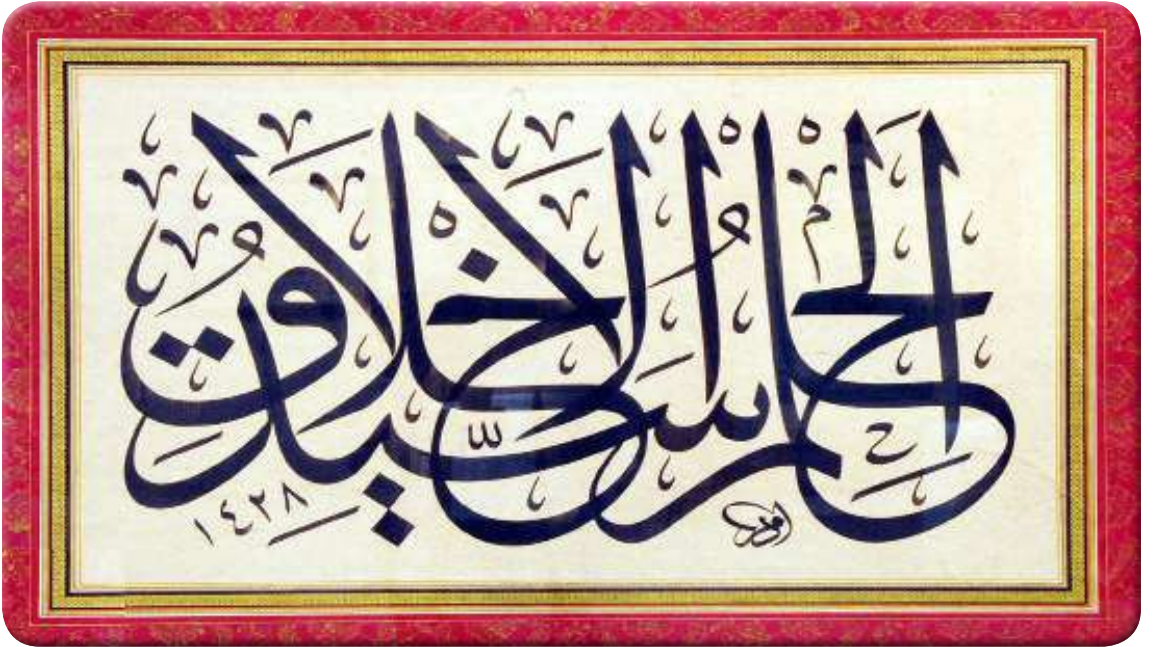 الحلم سيد الاخلاق
١٤٢٨